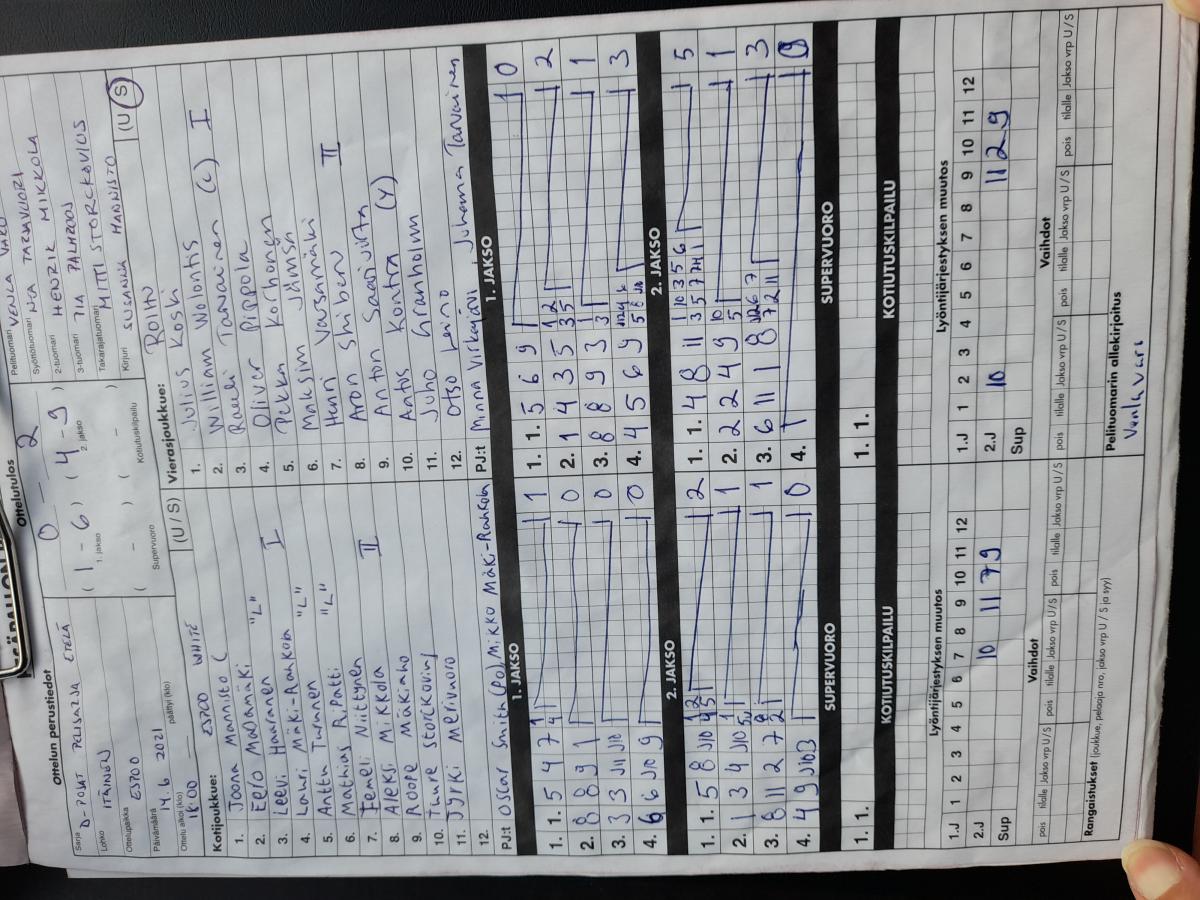 Ottelun perustiedot
Sarja D-POJAT PELISARJA ETELÄ
Lohko ITÄINEN
Ottelupaikka ESPOO
Päivämäärä 14.6 2021
Ottelu alkoi (klo) 18:00 päättyi (klo)
Ottelutulos
0 - 2
( 1 - 6 ) ( 4 - 9 )
1. jakso 2. jakso
( - ) ( - )
Supervuoro Kotiutuskilpailu
Pelituomari VENLA VARI
Syöttötuomari
2-tuomari HENRIK MIKKOLA
3-tuomari PIA PALMROOS
Takarajatuomari
Kirjuri SUSANNA MANNISTO
Kotijoukkue: ESPOO WHITE (U / S)
1. Joona Mannisto C
2. Eero Madamäki "L"
3. Leevi Haaranen
4. Lauri Mäki-Rahkola "L" I
5. Anttu Turunen
6. Mathias R.Patti "L"
7. Iemeli Niittynen
8. Aleksi Mikkola II
9. Roope Mäkiaho
10. Tuure Storckovius
11. Jyrki Merivuoro
12.
PJ:t Oscar Smith (PeJ) Mikko Mäki-Rahkola
Vierasjoukkue: ROIHU (U / S)
1. Julius Koski
2. William Wolontis
3. Raeli Tarvainen (C) I
4. Oliver Pippola
5. Pekka Korhonen
6. Maksim Jämsä
7. Henri Varsamäki
8. Aron Shiberu II
9. Anton Saarivirta
10. Antus Kontra (Y)
11. Juho Granholm
12. Otso Leino
PJ:t Minna Virkajärvi Juhana Tarvainen
1. JAKSO
1. 1. 5 4 7 1 4 1
2. 8 8 9 1 0
3. 3 3 J11 J10 0
4. 6 6 J10 9 0
2. JAKSO
1. 1. 5 8 J10 1 2 4 5 2
2. 1 3 4 J10 1
3. 8 11 2 7 1
4. 4 9 J10 3 0
1. JAKSO
1. 1. 5 6 9 0
2. 1 4 3 5 1 2 3 5 2
3. 8 8 9 3 1 3 1
4. 4 5 6 9 3
2. JAKSO
1. 1. 4 8 11 1 10 3 5 6 5
2. 2 2 4 9 10 5 1
3. 6 11 1 8 7 2 11 3
4. 1 0
SUPERVUORO
1. 1.
KOTIUTUSKILPAILU
SUPERVUORO
1. 1.
KOTIUTUSKILPAILU
Lyöntijärjestyksen muutos
1.J 1 2 3 4 5 6 7 8 9 10 11 12
2.J 10 11 7 9
Sup
Vaihdot
pois tilalle Jakso vrp U / S pois tilalle Jakso vrp U / S pois tilalle Jakso vrp U / S
Lyöntijärjestyksen muutos
1.J 1 2 3 4 5 6 7 8 9 10 11 12
2.J 10 11 2 9
Sup
Vaihdot
pois tilalle Jakso vrp U / S pois tilalle Jakso vrp U / S pois tilalle Jakso vrp U / S
Rangaistukset (joukkue, pelaaja nro, jakso vrp U / S ja syy)
Pelituomarin allekirjoitus
Venla Vari